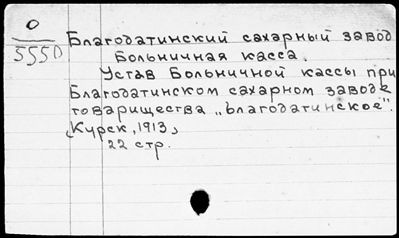 О
555D
Благодатинский сахарный завод
Больничная касса.
Устав Больничной кассы при
Благодатинском сахарном заводе
товарищества „Благодатинское".
[Курск, 1913]
22 стр.